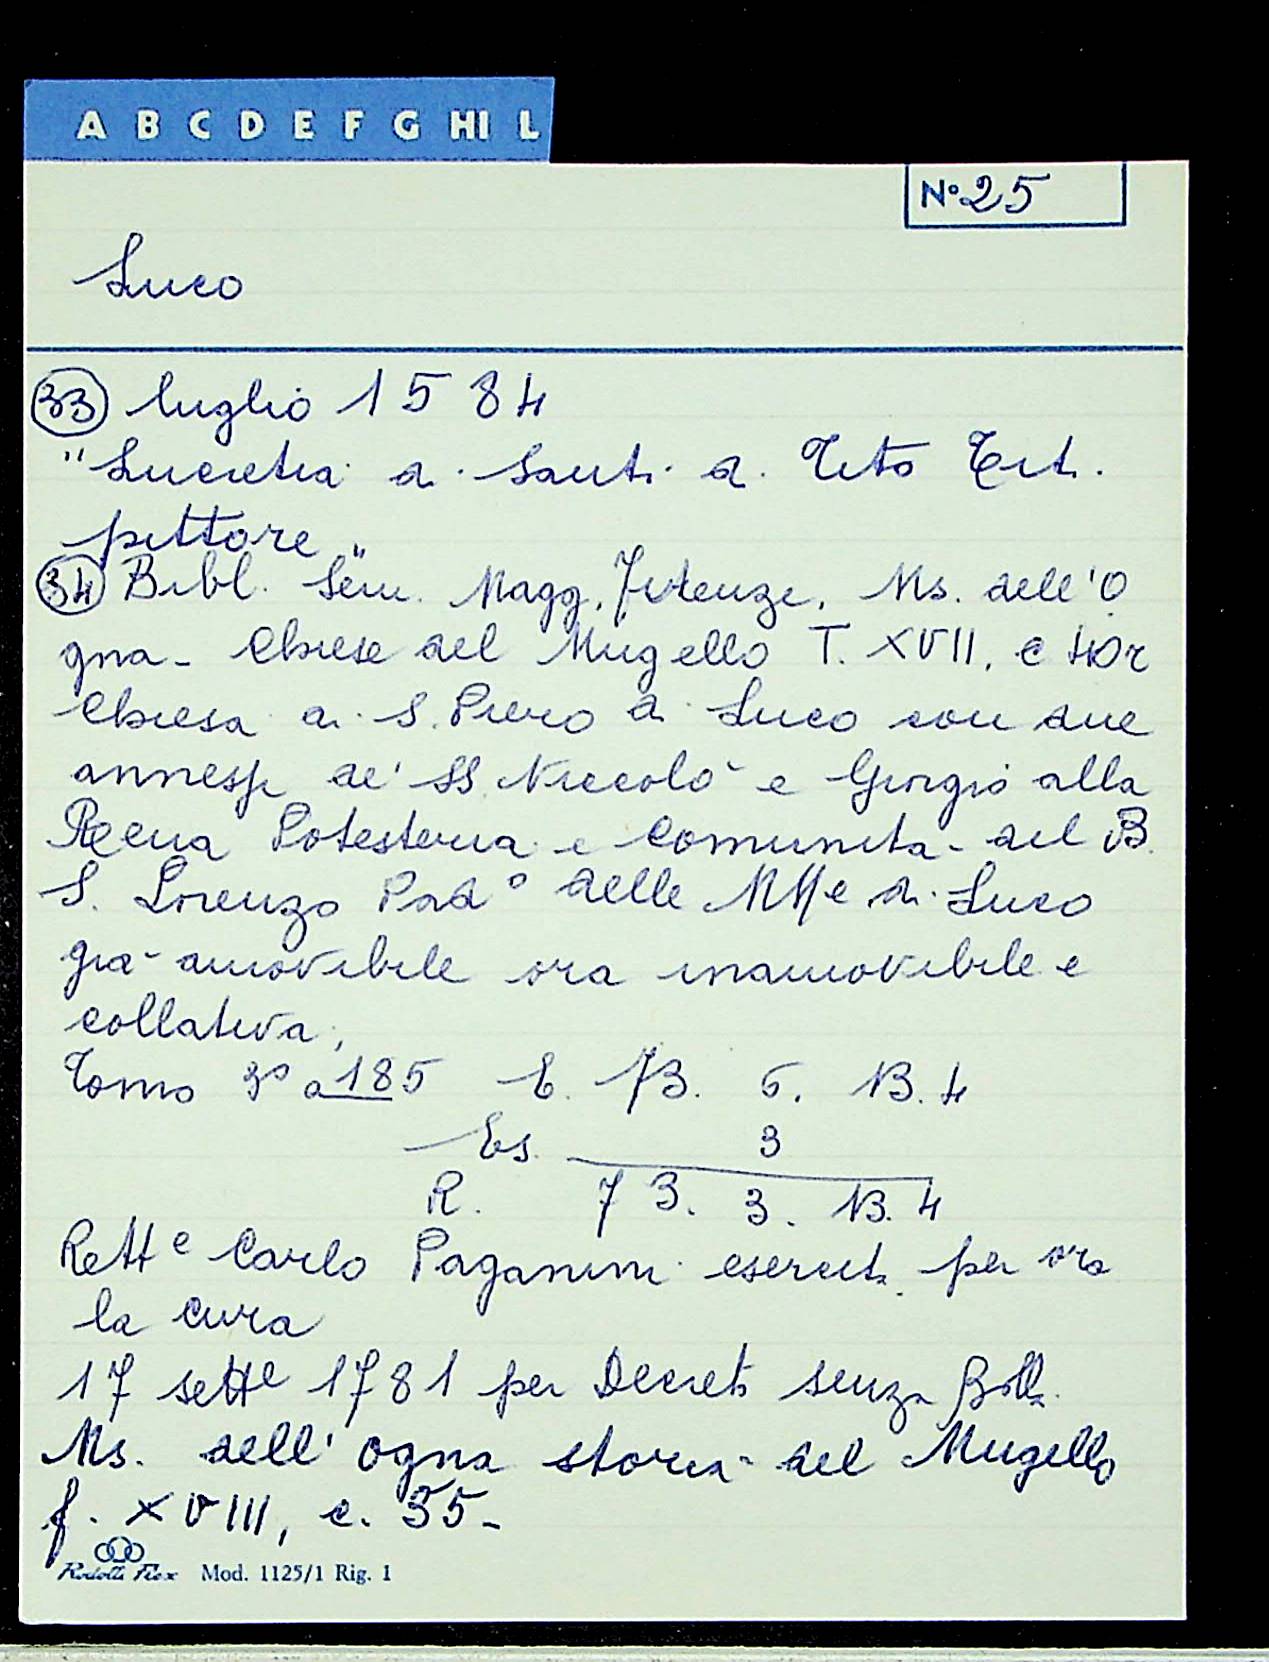 A B C D E F G HI L
N° 25
Luco
33 luglio 1584
"Lucretia di Santi di Tito Tit.
pittore"
34 Bibl. Sem. Magg. Firenze, Ms. dell'O
gna - Chiese del Mugello T. XVII, c 40r
Chiesa di S. Piero a Luco con due
annessi de' SS. Niccolò e Giorgio alla
Potesteria e Comunità del B.
S. Lorenzo Pad° delle MMe di Luco
già amovibile ora inamovibile e
collativa,
Tomo 3° a 185 E. 73. 6. 13. 4
Es. 3
R. 73. 3. 13. 4
Rett e Carlo Paganini esercita per ora
la cura
17 sett e 1781 per Decreto senza Bolla
Ms. dell'Ogna storia del Mugello
f. XVIII, c. 35-
Mod. 1125/1 Rig. 1